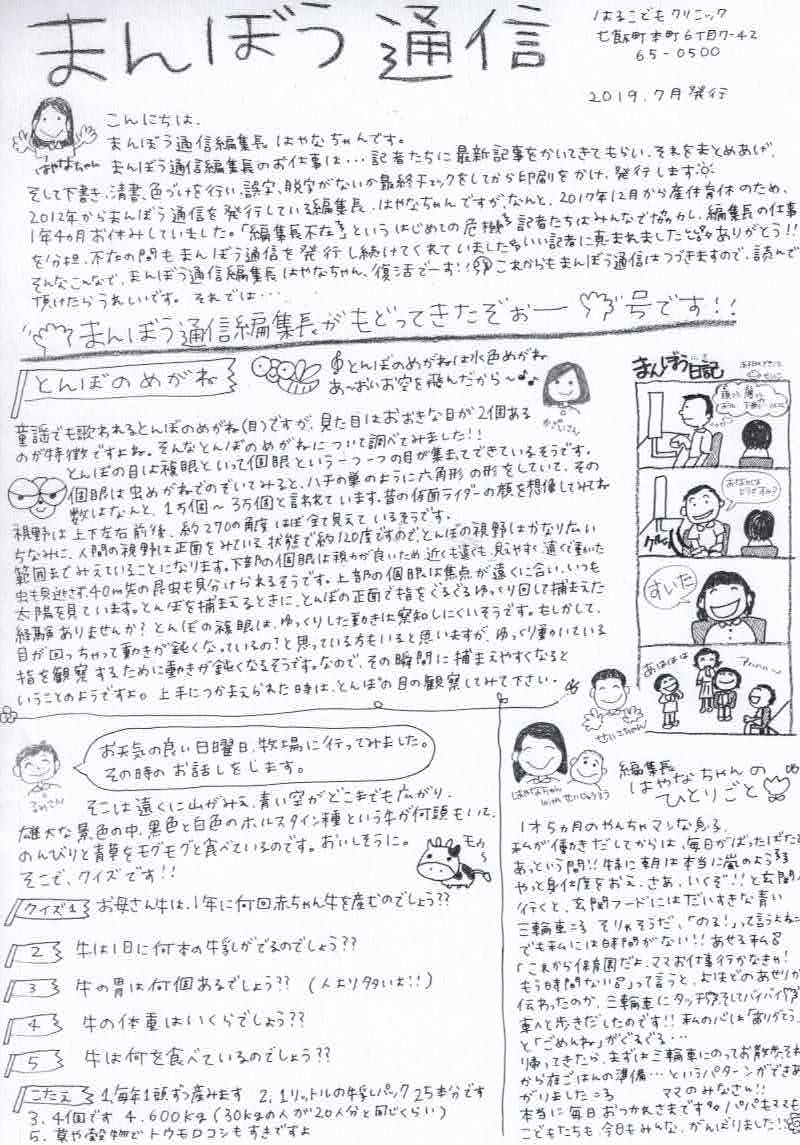 まんぼう通信
はるこどもクリニック
七飯町本町6丁目7-42
65-0500
2019.7月発行
こんにちは、
まんぼう通信編集長はやなちゃんです。
はやなちゃん
まんぼう通信編集長のお仕事は…記者たちに最新記事をかいてきてもらい、それをまとめあげ、
そして下書き、清書、色づけを行い、誤字、脱字がないか最終チェックをしてから印刷をかけ、発行します。
2012年からまんぼう通信を発行している編集長、はやなちゃんですが、なんと、2017年12月から産休育休のため、
1年4カ月お休みしていました。「編集長不在」というはじめての危機 記者たちはみんなで協力し、編集長の仕事
を分担、不在の間もまんぼう通信を発行し続けてくれていました いい記者に恵まれました ありがとう!!
そんなこんなで、まんぼう通信編集長はやなちゃん、復活でーす!! これからもまんぼう通信はつづきますので、読んで
頂けたらうれしいです。それでは…
まんぼう通信編集長がもどってきたぞぉー 号です!!
とんぼのめがね
とんぼのめがねは水色めがね
あ~おいお空を飛んだから~♪♪
童謡でも歌われるとんぼのめがね(目)ですが、見た目はおおきな目が2個ある
のが特徴ですよね。そんなとんぼのめがねについて調べてみました!!
とんぼの目は複眼といって個眼という一つ一つの目が集まってできているそうです。
個眼は虫めがねでのぞいてみると、ハチの巣のように六角形の形をしていて、その
数はなんと、1万個~3万個と言われています。昔の仮面ライダーの顔を想像してみてね
視野は上下左右前後、約270の角度ほぼ全て見えているそうです。
ちなみに、人間の視野は正面をみている状態で約120度ですので、とんぼの視野はかなり広い
範囲までみえていることになります。下部の個眼は視力が良いため、近くも遠くも、見えやすく、速くて動いた
虫も見逃さず、40m先の昆虫も見分けられるそうです。上部の個眼は焦点が遠くに合い、いつも
太陽を見ています。とんぼを捕まえるときに、とんぼの正面で指をぐるぐるゆっくり回して捕まえた
経験ありませんか?とんぼの複眼は、ゆっくりした動きは察知しにくいそうです。もしかして、
目が回っちゃって動きが鈍くなっているの?と思っている方もいると思いますが、ゆっくり動いている
指を観察するために動きが鈍くなるそうです。なので、その瞬間に捕まえやすくなると
いうことのようですよ。上手につかまえられた時は、とんぼの目の観察してみて下さい。
まんぼう日記
おなかは
どうですか?
すいた
あははは
アハハハ~
るみさん
お天気の良い日曜日、牧場に行ってみました。
その時のお話しをします。
そこは遠くに山がみえ、青い空がどこまでも広がり、
雄大な景色の中、黒色と白色のホルスタイン種という牛が何頭もいて、
のんびりと青草をモグモグと食べているのです。おいしそうに。
そこで、クイズです!!
モゥ~
クイズ1 お母さん牛は、1年に何回赤ちゃん牛を産むのでしょう??
2 牛は1日に何本の牛乳がでるのでしょう??
3 牛の胃は何個あるでしょう?? (人より多いよ!!)
4 牛の体重はいくらでしょう??
5 牛は何を食べているのでしょう??
こたえ 1.毎年1頭ずつ産みます 2.1リットルの牛乳パック25本分です
3.4個です 4.600kg(30kgの人が20人分と同じくらい)
5.草や穀物でトウモロコシもすきですよ
せいこちゃん
はやなちゃん
編集長
はやなちゃんの
ひとりごと
1才5ヵ月のやんちゃマンな息子。
私が働きだしてからは、毎日がばったばた
あっという間!! 特に朝は本当に嵐のよう
やっと身仕度をおえ、さあ、いくぞ!!と玄関へ
行くと、玄関フードにはだいすきな青い
三輪車 そりゃそうだ、「のる!」って言うよね
でも私には時間がない!! あせる私
「これから保育園だよ、ママお仕事行かなきゃ!
もう時間ない」って言うと、よほどのあせりが
伝わったのか、三輪車にタッチ そしてバイバイ
車へと歩きだしたのです!! 私の心は「ありがとう」
と「ごめんね」がぐるぐる…
帰ってきたら、まずは三輪車にのってお散歩、それ
から夜ごはんの準備…というパターンができあ
がりました ママのみなさん!!
本当に毎日おつかれさまです パパもママも
こどもたちも、今日もみんな、がんばりました!!